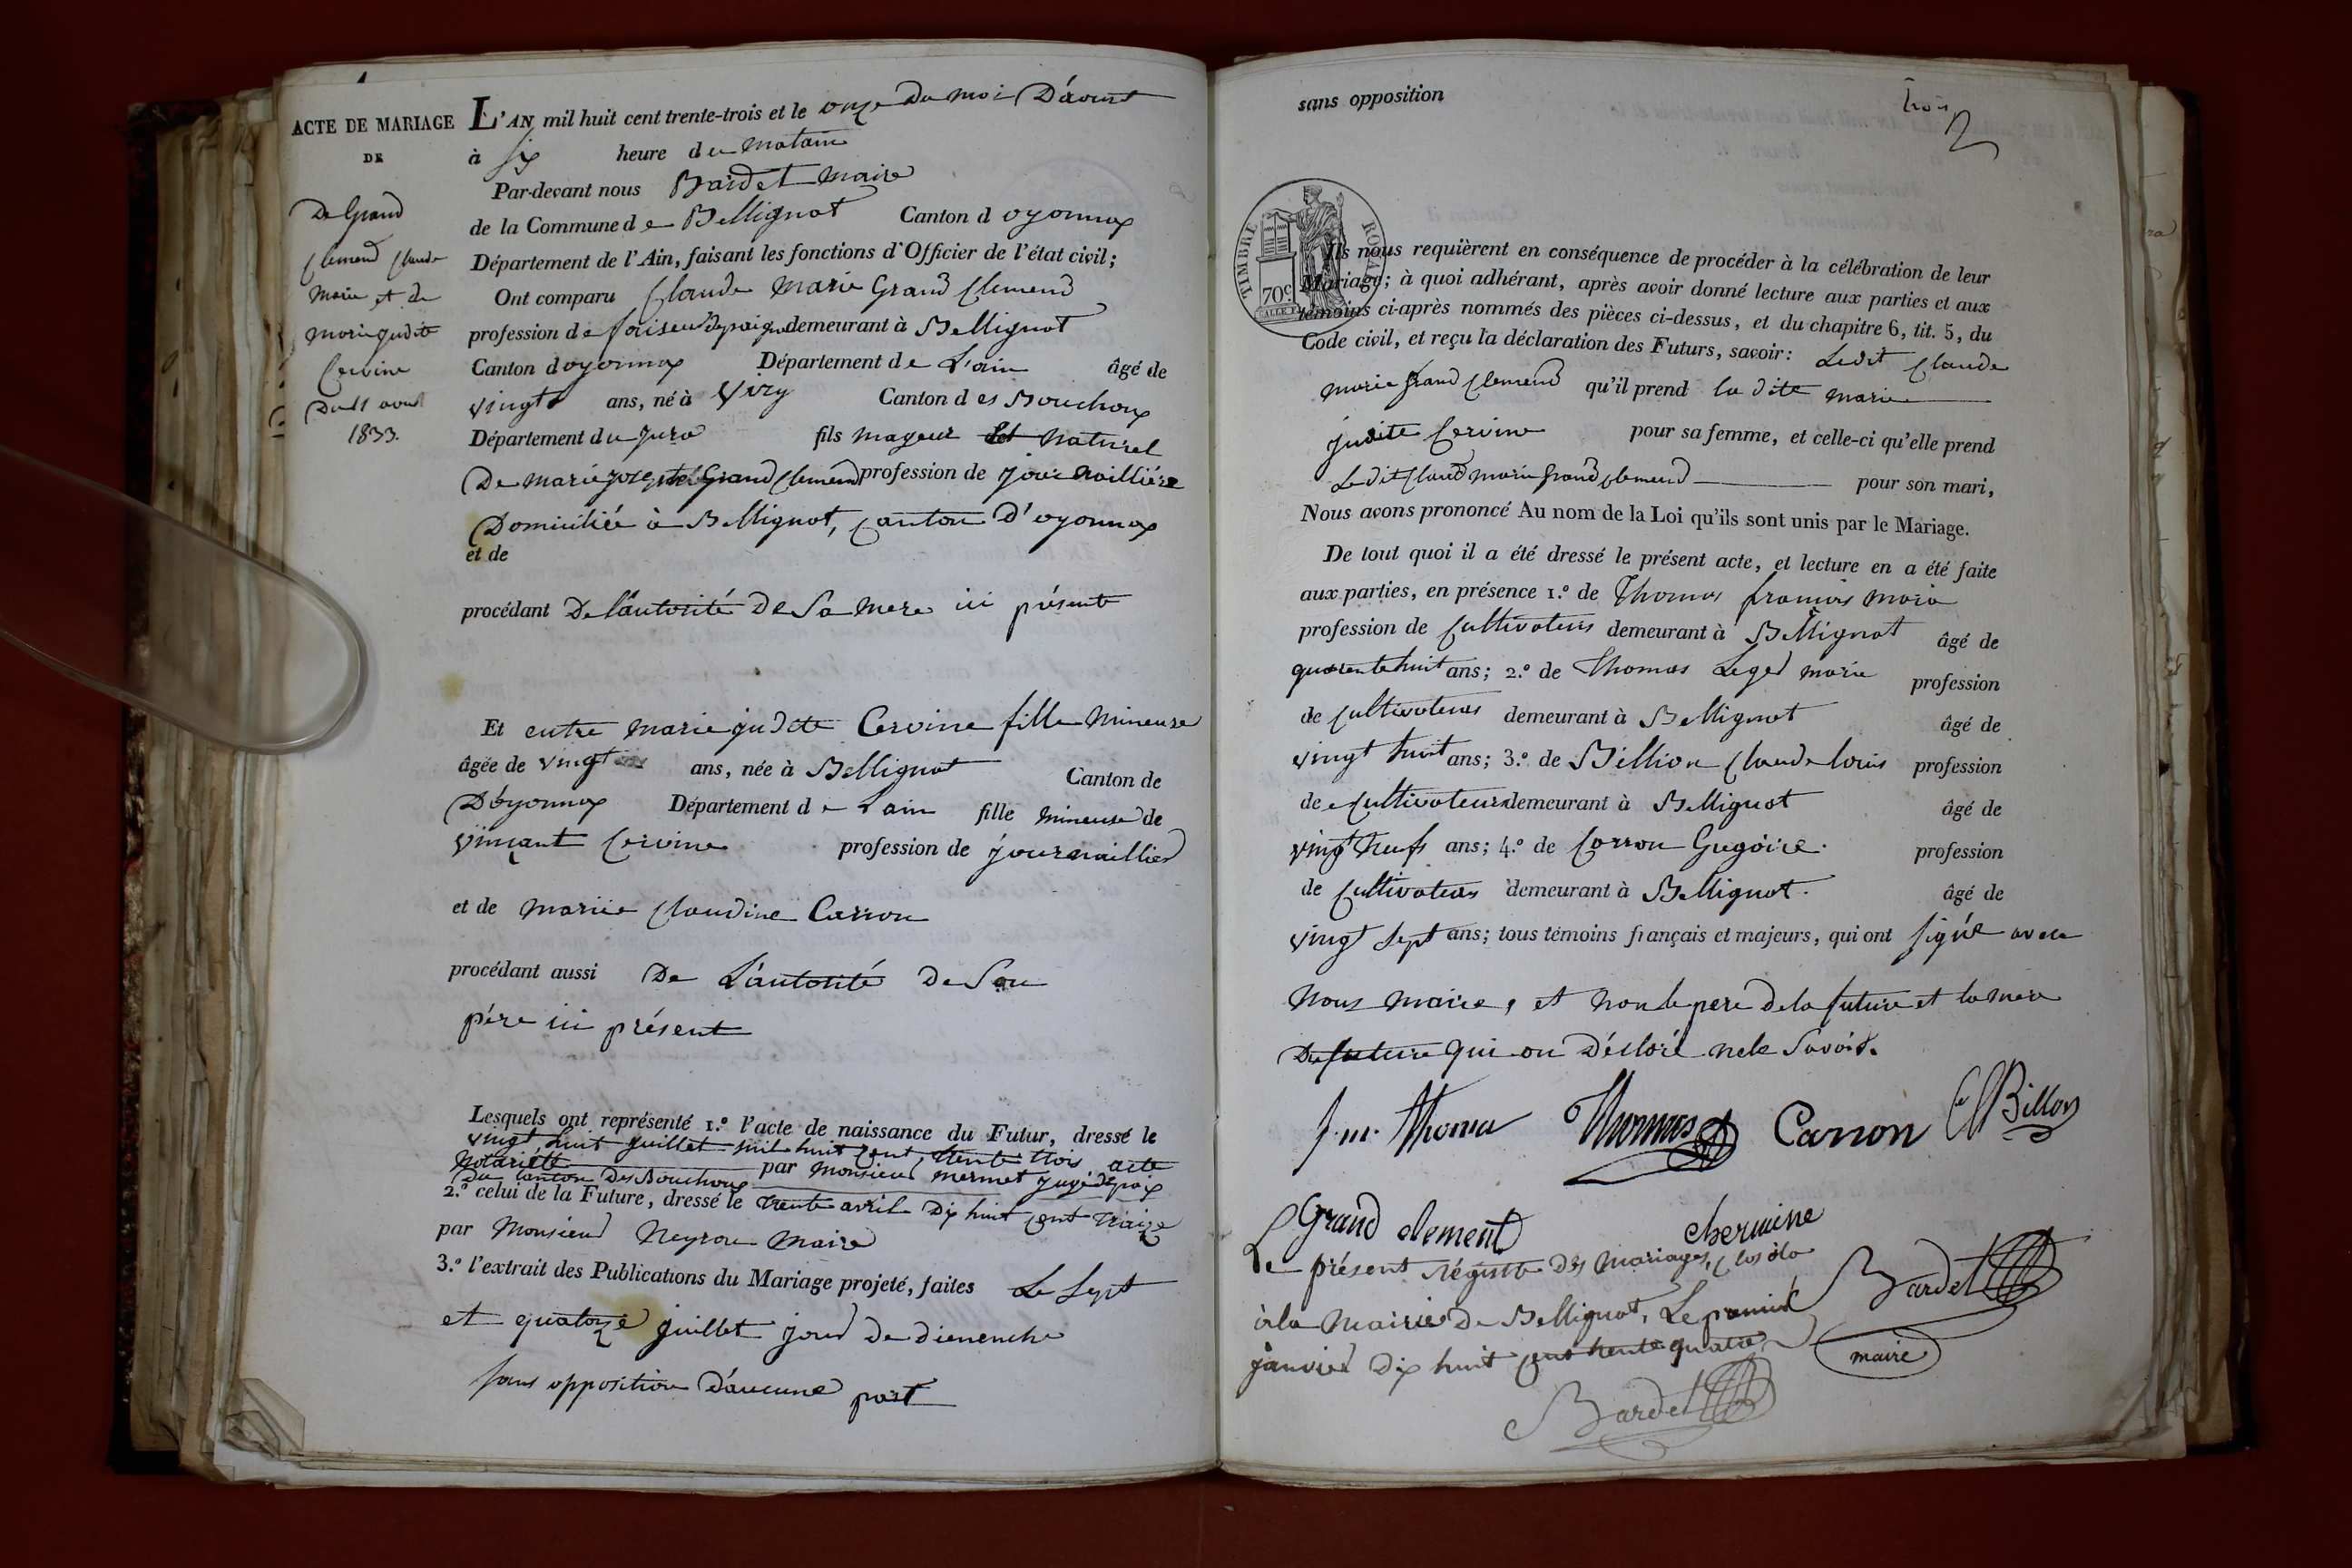 ACTE DE MARIAGE
DE
De Grand
Clemend Claude
Marie et de
Marie judite
Cervine
Du 11 aout
1833.
L'AN mil huit cent trente-trois et le onze du moi D'aout
à six heure du matain
Par-devant nous Bardet maire
de la Commune de Bellignat Canton d oyonnax
Département de l'Ain, faisant les fonctions d'Officier de l'état civil;
Ont comparu Claude Marie Grand Clemend
profession de faiseur De paigne demeurant à Bellignat
Canton d oyonnax Département de L'ain âgé de
vingt ans, né à Viry Canton d es Bouchoux
Département du Jura fils mageur et naturel
De marie josephte Grand Clemend profession de jour naillière
Domiciliée à Bellignat, canton D'oyonnax
et de
procédant De l'autorité De Sa mere ici présente
Et entre marie judite Cervine fille mineure
âgée de vingt ans, née à Bellignat Canton de
D'oyonnax Département de Lain fille mineure de
vinçant Cervine profession de journaillier
et de mariie Claudine Carron
procédant aussi De L'autorité De Son
pére ici présent
Lesquels ont représenté 1.º l'acte de naissance du Futur, dressé le
vingt huit juillet mil huit cent trente trois acte
notariètte par Monsieur mermet juge de paix
Du canton Des Bouchoux
2.º celui de la Future, dressé le trente avril Dix huit cent traize
par Monsieur Neyron maire
3.º l'extrait des Publications du Mariage projeté, faites Le Sept
et quatorze juillet jour De dienenche
sans opposition D'aucune part
sans opposition
trois
Ils nous requièrent en conséquence de procéder à la célébration de leur
Mariage; à quoi adhérant, après avoir donné lecture aux parties et aux
témoins ci-après nommés des pièces ci-dessus, et du chapitre 6, tit. 5, du
Code civil, et reçu la déclaration des Futurs, savoir: Ledit Claude
marie grand Clemend qu'il prend la dite marie
judite Cervine pour sa femme, et celle-ci qu'elle prend
Ledit Claud marie grand Clemend pour son mari,
Nous avons prononcé Au nom de la Loi qu'ils sont unis par le Mariage.
De tout quoi il a été dressé le présent acte, et lecture en a été faite
aux parties, en présence 1.º de Thomas françois maria
profession de Cultivateur demeurant à Bellignat âgé de
quarente huit ans; 2.º de Thomas Leger marie profession
de Cultivateur demeurant à Bellignat âgé de
vingt huit ans; 3.º de Billion Claude louis profession
de Cultivateur demeurant à Bellignat âgé de
vingt neuf ans; 4.º de Carron Gregoire. profession
de Cultivateur demeurant à Bellignat. âgé de
vingt Sept ans; tous témoins français et majeurs, qui ont signé avec
Nous maire, et non le pere de la future et la mere
Du future qui on Décloré nele Savoir.
f. m. thoma Thomas Carron Cl Billon
Grand clement chervine
Le présent régistre Des mariages, Clos
à la mairie De Bellignat, Le premier Bardet
janvier Dix huit cent trente quatre maire
Bardet
TIMBRE ROYAL
70c